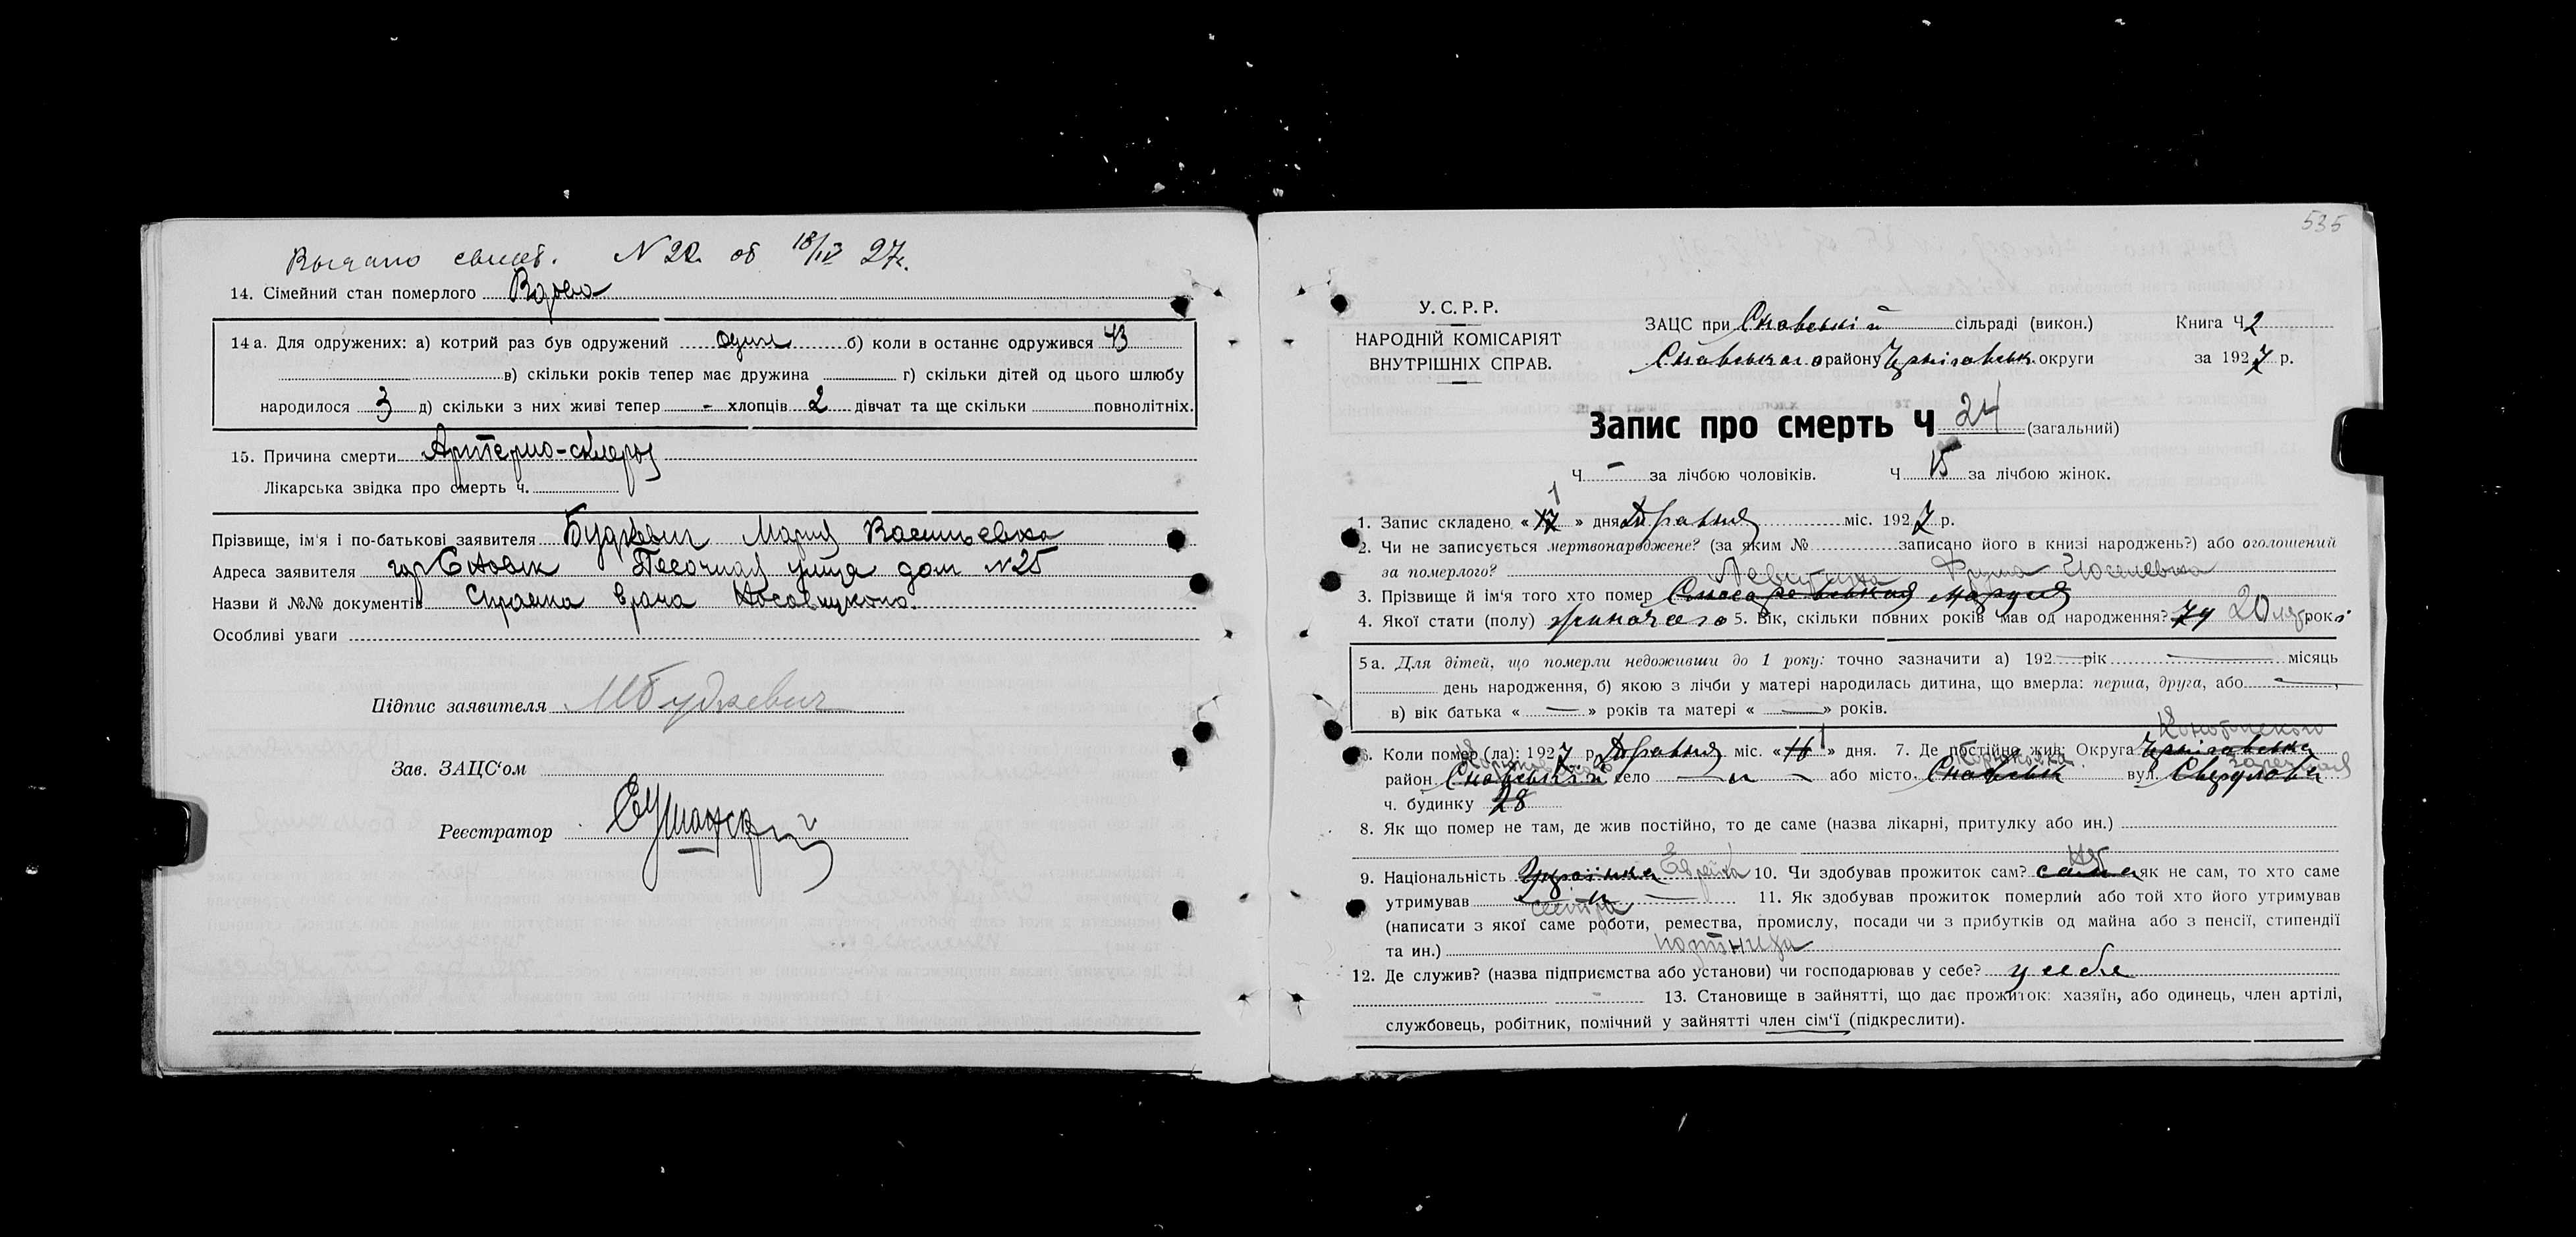 Выдано свидет. N 22 от 18/IV 27г.
14. Сімейний стан померлого Вдова
14 а. Для одружених: а) котрий раз був одружений один б) коли в останнє одружився 43
в) скільки років тепер має дружина г) скільки дітей од цього шлюбу
народилося 3 д) скільки з них живі тепер - хлопців 2 дівчат та ще скільки повнолітніх.
15. Причина смерти Артерио-склероз
Лікарська звідка про смерть ч.
Прізвище, ім'я і по-батькові заявителя Будкевич Мария Васильевна
Адреса заявителя гор Сновск Песочная улица дом N25
Назви й №№ документів Справка врача Носовицкого.
Особливі уваги
Підпис заявителя МБудкевич
Зав. ЗАЦС'ом
Реєстратор
535
У. С. Р. Р.
НАРОДНІЙ КОМІСАРІЯТ
ВНУТРІШНІХ СПРАВ.
ЗАЦС при Сновській сільраді (викон.) Книга Ч 2
Сновського району Черніговськ. округи за 1927 р.
Запис про смерть Ч 24 (загальний)
Ч - за лічбою чоловіків. Ч 15 за лічбою жінок.
1. Запис складено « 17 1 » дня Травня міс. 1927 р.
2. Чи не записується мертвонароджене? (за яким № записано його в книзі народжень?) або оголошений
за померлого?
Левитина Фрума
3. Прізвище й ім'я того хто помер Слюсаревская Маруся
4. Якої стати (полу) жіночого 5. Вік, скільки повних років мав од народження? 74 20 років
5 а. Для дітей, що померли недоживши до 1 року: точно зазначити а) 192 рік місяць
день народження, б) якою з лічби у матері народилась дитина, що вмерла: перша, друга, або
в) вік батька « — » років та матері « — » років.
Конотопского
6. Коли помер (ла): 1927 р. Травня міс. « 16 1 » дня. 7. Де постійно жив: Округа Черніговська
Корюковка Заречная
район Сновський село — або місто Сновськ вул. Свердлова
ч. будинку 28
8. Як що помер не там, де жив постійно, то де саме (назва лікарні, притулку або ин.)
9. Національність Українка Еврейка 10. Чи здобував прожиток сам? сама нет як не сам, то хто саме
утримував сестра 11. Як здобував прожиток померлий або той хто його утримував
(написати з якої саме роботи, ремества, промислу, посади чи з прибутків од майна або з пенсії, стипендії
та ин.) портниха
12. Де служив? (назва підприємства або установи) чи господарював у себе? у себе
13. Становище в зайнятті, що дає прожиток: хазяїн, або одинець, член артілі,
службовець, робітник, помічний у зайнятті член сім'ї (підкреслити).